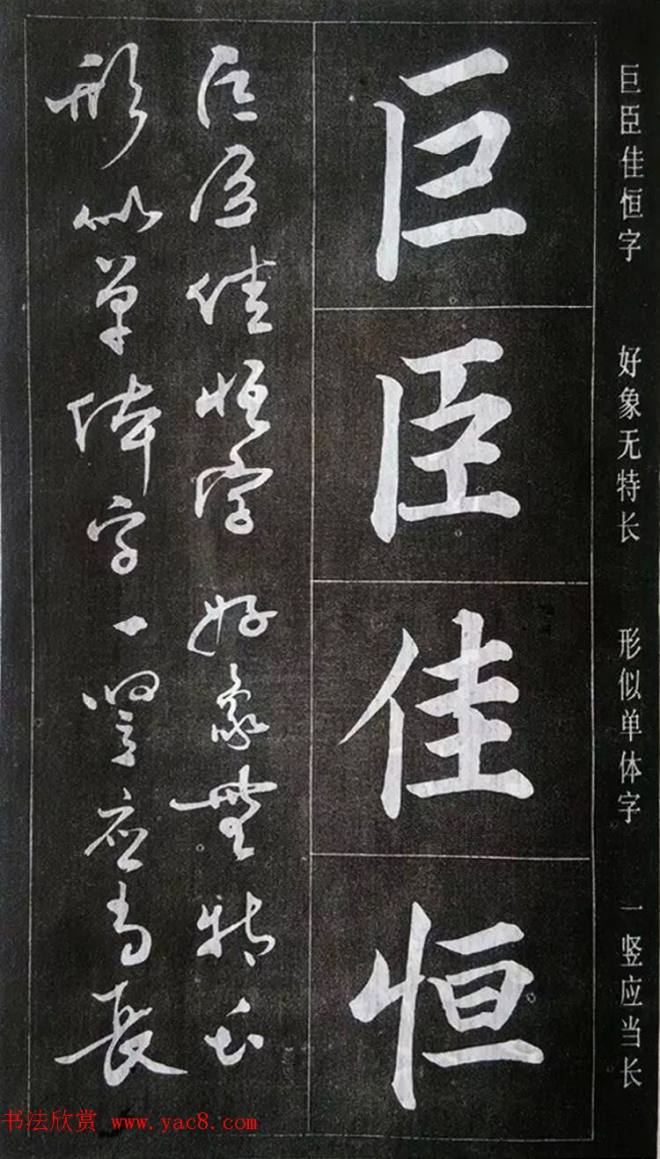 巨臣佳恒字 好象无特长 形似单体字 一竖应当长
巨
臣
佳
恒
巨臣佳恒字好象無特长
形似单体字一竖应当長
书法欣赏 www.yac8.com